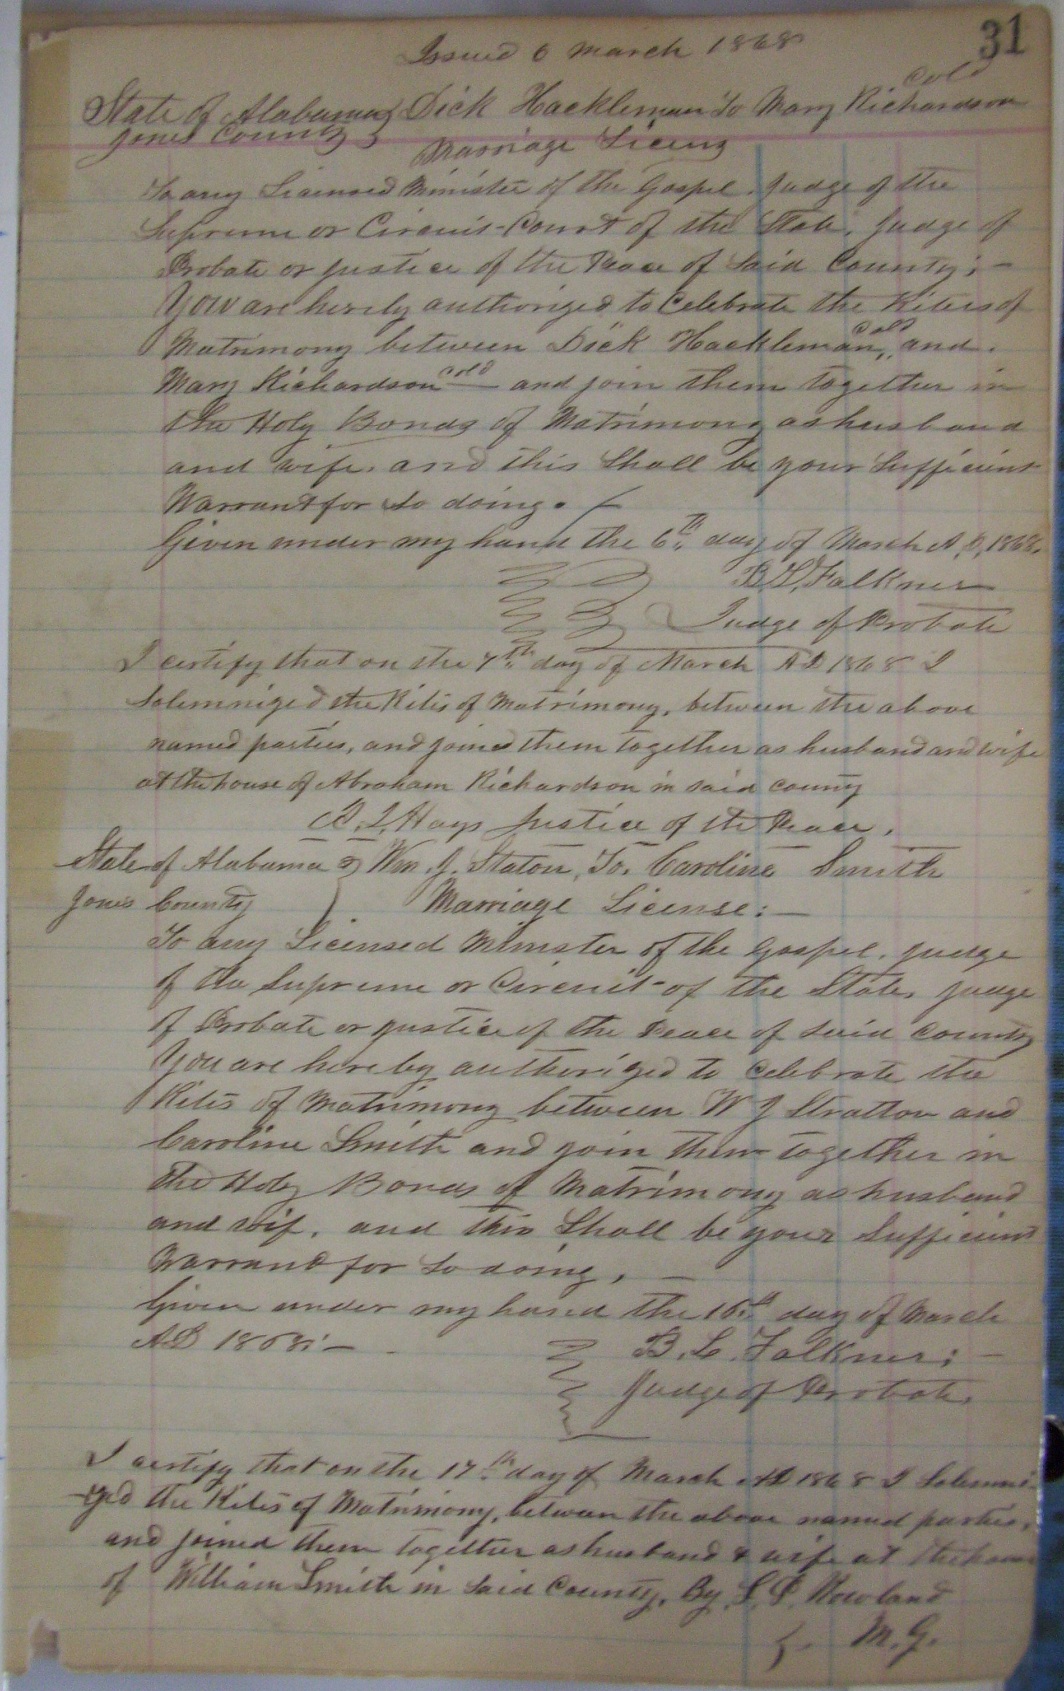 31
Issued 6 March 1868
cold
State of Alabama } Dick Hackleman To Mary Richardson
Jones County } Marriage Licens
To any Licensed Minister of the Gospel. Judge of the
Supreme or Circuit-Court of the State, Judge of
Probate or Justice of the Peace of Said County; -
You are hereby authorized to Celebrate the Rites of
Matrimony between Dick Hackleman, cold and
Mary Richardson cold and join them together in
the Holy Bonds of Matrimony as husband
and wife. and this Shall be your Sufficient
Warrant for So doing.
Given under my hand the 6th day of March A,D, 1868.
B. L. Falkner
Judge of Probate
I certify that on the 7th day of March AD 1868 I
Solemnized the Rites of Matrimony, between the above
named parties, and joined them together as husband and wife
at the house of Abraham Richardson in said county
Hays Justice of the Peace.
State of Alabama } Wm. J. Staton, To. Caroline Smith
Jones County } Marriage License: -
To any Licensed Minister of the Gospel. Judge
of the Supreme or Circuit-of the State, Judge
of Probate or Justice of the Peace of Said County
You are hereby authorized to Celebrate the
Rites of Matrimony between W J Stratton and
Caroline Smith and join them together in
the Holy Bonds of Matrimony as husband
and wif. and this Shall be your Sufficient
Warrant for So doing, -
Given under my hand the 16th day of March
AD 1868; -
B. L. Falkner; -
Judge of Probate,
I certify that on the 17th day of March AD 1868 I Solemni
-zed the Rites of Matrimony, between the above named parties,
and joined them together as husband & wife at the house
of William Smith in Said County, By Rowland
M. G.